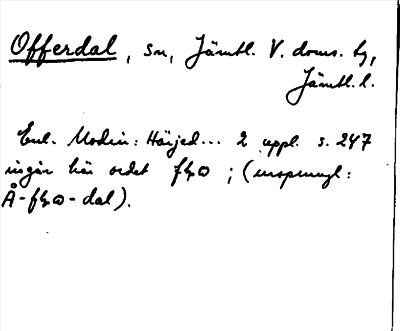 Offerdal, sn, Jämtl. V. doms. tg,
Jämtl. l.
Enl. Modin: Härjed... 2 uppl. s. 247
ingår här ordet ; (ursprungl:
Å- -dal).